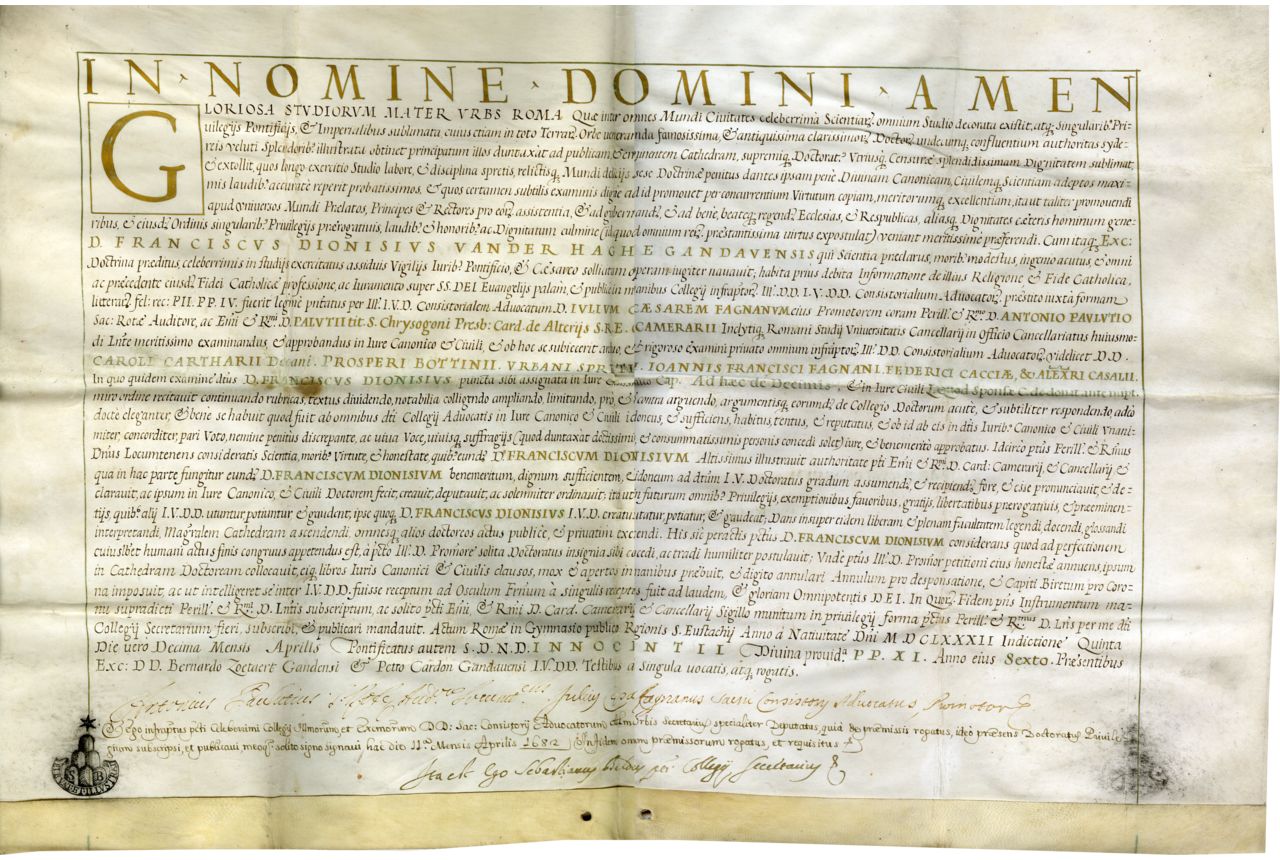 IN · NOMINE · DOMINI · AMEN
GLORIOSA STVDIORVM MATER VRBS ROMA Quæ inter omnes Mundi Ciuitates celeberrima Scientiar. omnium Studio decorata existit, atq. singularib. Pri-
uilegijs Pontificijs, & Imperialibus sublimata, cuius etiam in toto Terrar. Orbe veneranda famosissima, & antiquissima clarissimor. Doctor. undecumq. confluentium authoritas syde-
reis veluti Splendorib. illustrata obtinet principatum illos duntaxàt ad publicam, & eminentem Cathedram, supremiq. Doctorat. Vtriusq. Censuræ splendidissimam Dignitatem sublimat,
& extollit, quos longo exercitio Studio labore, & disciplina spretis, relictisq. Mundi delicijs sese Doctrinæ penitus dantes ipsam penè Diuinam Canonicam, Ciuilemq. Scientiam adeptos maxi-
mis laudib. accuratè reperit probatissimos, & quos certamen subtilis examinis dignè ad id promouet per concurrentium Virtutum copiam, meritorumq. excellentiam, ita ut taliter promouendi
apud vniuersos Mundi Prelatos, Principes & Rectores pro eor. assistentia, & ad gubernand. & ad benè, beateq. regend. Ecclesias, & Respublicas, aliasq. Dignitates cæteris hominum gene-
ribus, & eiusd. Ordinis singularib. Priuilegijs prærogatiuis, laudib. & honorib. ac Dignitatum culmine (id quod omnium rer. præstantissima uirtus expostulat) veniant meritissimè præferendi. Cum itaq. Exc:
D. FRANCISCVS DIONISIVS VANDER HAGHE GANDAVENSIS qui Scientia præclarus, morib. modestus, ingenio acutus, & omni
Doctrina præditus, celeberrimis in studijs exercitatus assiduis Vigilijs Iurib. Pontificio, & Cæsareo sollicitam operam iugiter nauauit, habita prius debita Informatione de illius Religione, & Fide Catholica,
ac præcedente eiusd. Fidei Catholicæ professione, ac Iuramento super SS. DEI Euangelijs palam, & publicè in manibus Collegij infraptor. Ill. D.D. I.V.DD. Consistorialium Aduocator. præstito iuxtà formam
litterar. fel: rec: PII. PP. IV. fuerit legimè pntatus per Ill. I.V.D. Consistorialem Aduocatum D. IVLIVM CÆSAREM FAGNANVM eius Promotorem coram Perill. & R. D. ANTONIO PAVLVTIO
Sac: Rotæ Auditore, ac Emi & R. D. PALVTII tit. S. Chrysogoni Presb: Card. de Alterijs S.R.E. CAMERARII Inclytiq. Romani Studij Vniuersitatis Cancellarij in officio Cancellariatus huiusmo-
di Lnte meritissimo examinandus, & approbandus in Iure Canonico & Ciuili, & ob hoc se subiecerit arduo, & rigoroso examini priuato omnium infraptor. Ill. DD. Consistorialium Aduocator. videlicet D.D.
CAROLI CARTHARII Decani. PROSPERI BOTTINII. VRBANI SPRITI. IOANNIS FRANCISCI FAGNANI. FEDERICI CACCIÆ, & ALEXRI CASALII.
In quo quidem examine dtus D. FRANCISCVS DIONISIVS puncta sibi assignata in Iure Canonico Cap. Ad hæc de Decimis, & in Iure Ciuili Leg. quod Sponsæ C. de donat. ante nupt.
miro ordine recitauit continuando rubricas, textus diuidendo, notabilia colligendo ampliando, limitando, pro, & contra arguendo, argumentisq. eorund. de Collegio Doctorum acutè, & subtiliter respondendo, adeò
doctè eleganter, & benè se habuit quod fuit ab omnibus dti Collegij Aduocatis in Iure Canonico & Ciuili idoneus, & sufficiens, habitus, tentus, & reputatus, & ob id ab eis in dtis Iurib. Canonico & Ciuili vnani-
miter, concorditer, pari Voto, nemine penitus discrepante, ac uiua Voce, uiuisq. suffragijs (quod duntaxàt doctissimis, & consummatissimis personis concedi solet) iure, & benemerito approbatus. Idcirco ptus Perill. & Rmus
Dnus Locumtenens consideratis Scientia, morib. Virtute, & honestate quib. eund. D. FRANCISCVM DIONISIVM Altissimus illustrauit authoritate pti Emi & R. D. Card: Camerarij, & Cancellarij &
qua in hac parte fungitur eund. D. FRANCISCVM DIONISIVM benemeritum, dignum sufficientem, & idoneum ad dtum I.V. Doctoratus gradum assumend. & recipiend. fore, & esse pronunciauit, & de-
clarauit, ac ipsum in Iure Canonico, & Ciuili Doctorem fecit, creauit, deputauit, ac solemniter ordinauit; ita uth futurum omnib. Priuilegijs, exemptionibus, fauoribus, gratijs, libertatibus prærogatiuis, & præeminen-
tijs, quib. alij I.V.DD. utuntur, potiuntur & gaudent, ipse quoq. D. FRANCISCVS DIONISIVS I.V.D. creatus utatur, potiatur, & gaudeat; Dans insuper eidem liberam & plenam facultatem legendi, docendi, glossandi
interpretandi, Magralem Cathedram ascendendi, omnesq. alios doctoreos actus publicè, & priuatim exercendi. His sic peractis pctus D. FRANCISCVM DIONISIVM considerans quod ad perfectionem
cuiuslibet humani actus finis congruus appetendus est, à pcto Ill. D. Promore solita Doctoratus insignia sibi cocedi, ac tradi humiliter postulauit; Vnde ptus Ill. D. Promor petitioni eius honestæ annuens, ipsum
in Cathedram Doctoream collocauit, eiq. libros Iuris Canonici & Ciuilis clausos, mox & apertos in manibus præbuit, & digito annulari Annulum pro desponsatione, & Capiti Biretum pro Coro-
na imposuit, ac ut intelligeret se inter I.V.DD. fuisse receptum ad Osculum Frnum à singulis receptus fuit ad laudem, & gloriam Omnipotentis DEI. In Quor. Fidem pns Instrumentum ma-
nu supradicti Perill. & R. D. Lntis subscriptum, ac solito pti Emi, & Rmi D. Card. Camerarij & Cancellarij Sigillo munitum in priuilegij forma ptus Perill. & R. D. Lns per me dti
Collegij Secretarium fieri, subscribi, & publicari mandauit. Actum Romæ in Gymnasio publico Regionis S. Eustachij Anno à Natiuitate Dni M DCLXXXII Indictione Quinta
Die uero Decima Mensis Aprilis Pontificatus autem S. D. N. D. INNOCENTII Diuina prouid. PP. XI. Anno eius Sexto. Præsentibus
Exc: DD. Bernardo Zoetaert Gandensi & Petro Cardon Gandauensi I.V.DD. Testibus à singula uocatis, atq. rogatis.
Antonius Paulutius Julius Cæs. Fagnanus Sacri Consistorij Aduocatus, Promotor
Et ego infraptus pcti Celeberrimi Collegij Illmorum et Exc̃morum DD: Sac: Consistorij Aduocatorum Secretarius specialiter Deputatus, quia de præmissis rogatus, ideò præsens Doctoratus Priuile-
gium subscripsi, et publicaui meoq. solito signo signaui hac die 11 Mensis Aprilis 1682 In fidem omn præmissorum rogatus, et requisitus
Ita est Ego Sebastianus pti Collegij Secretarius
S B